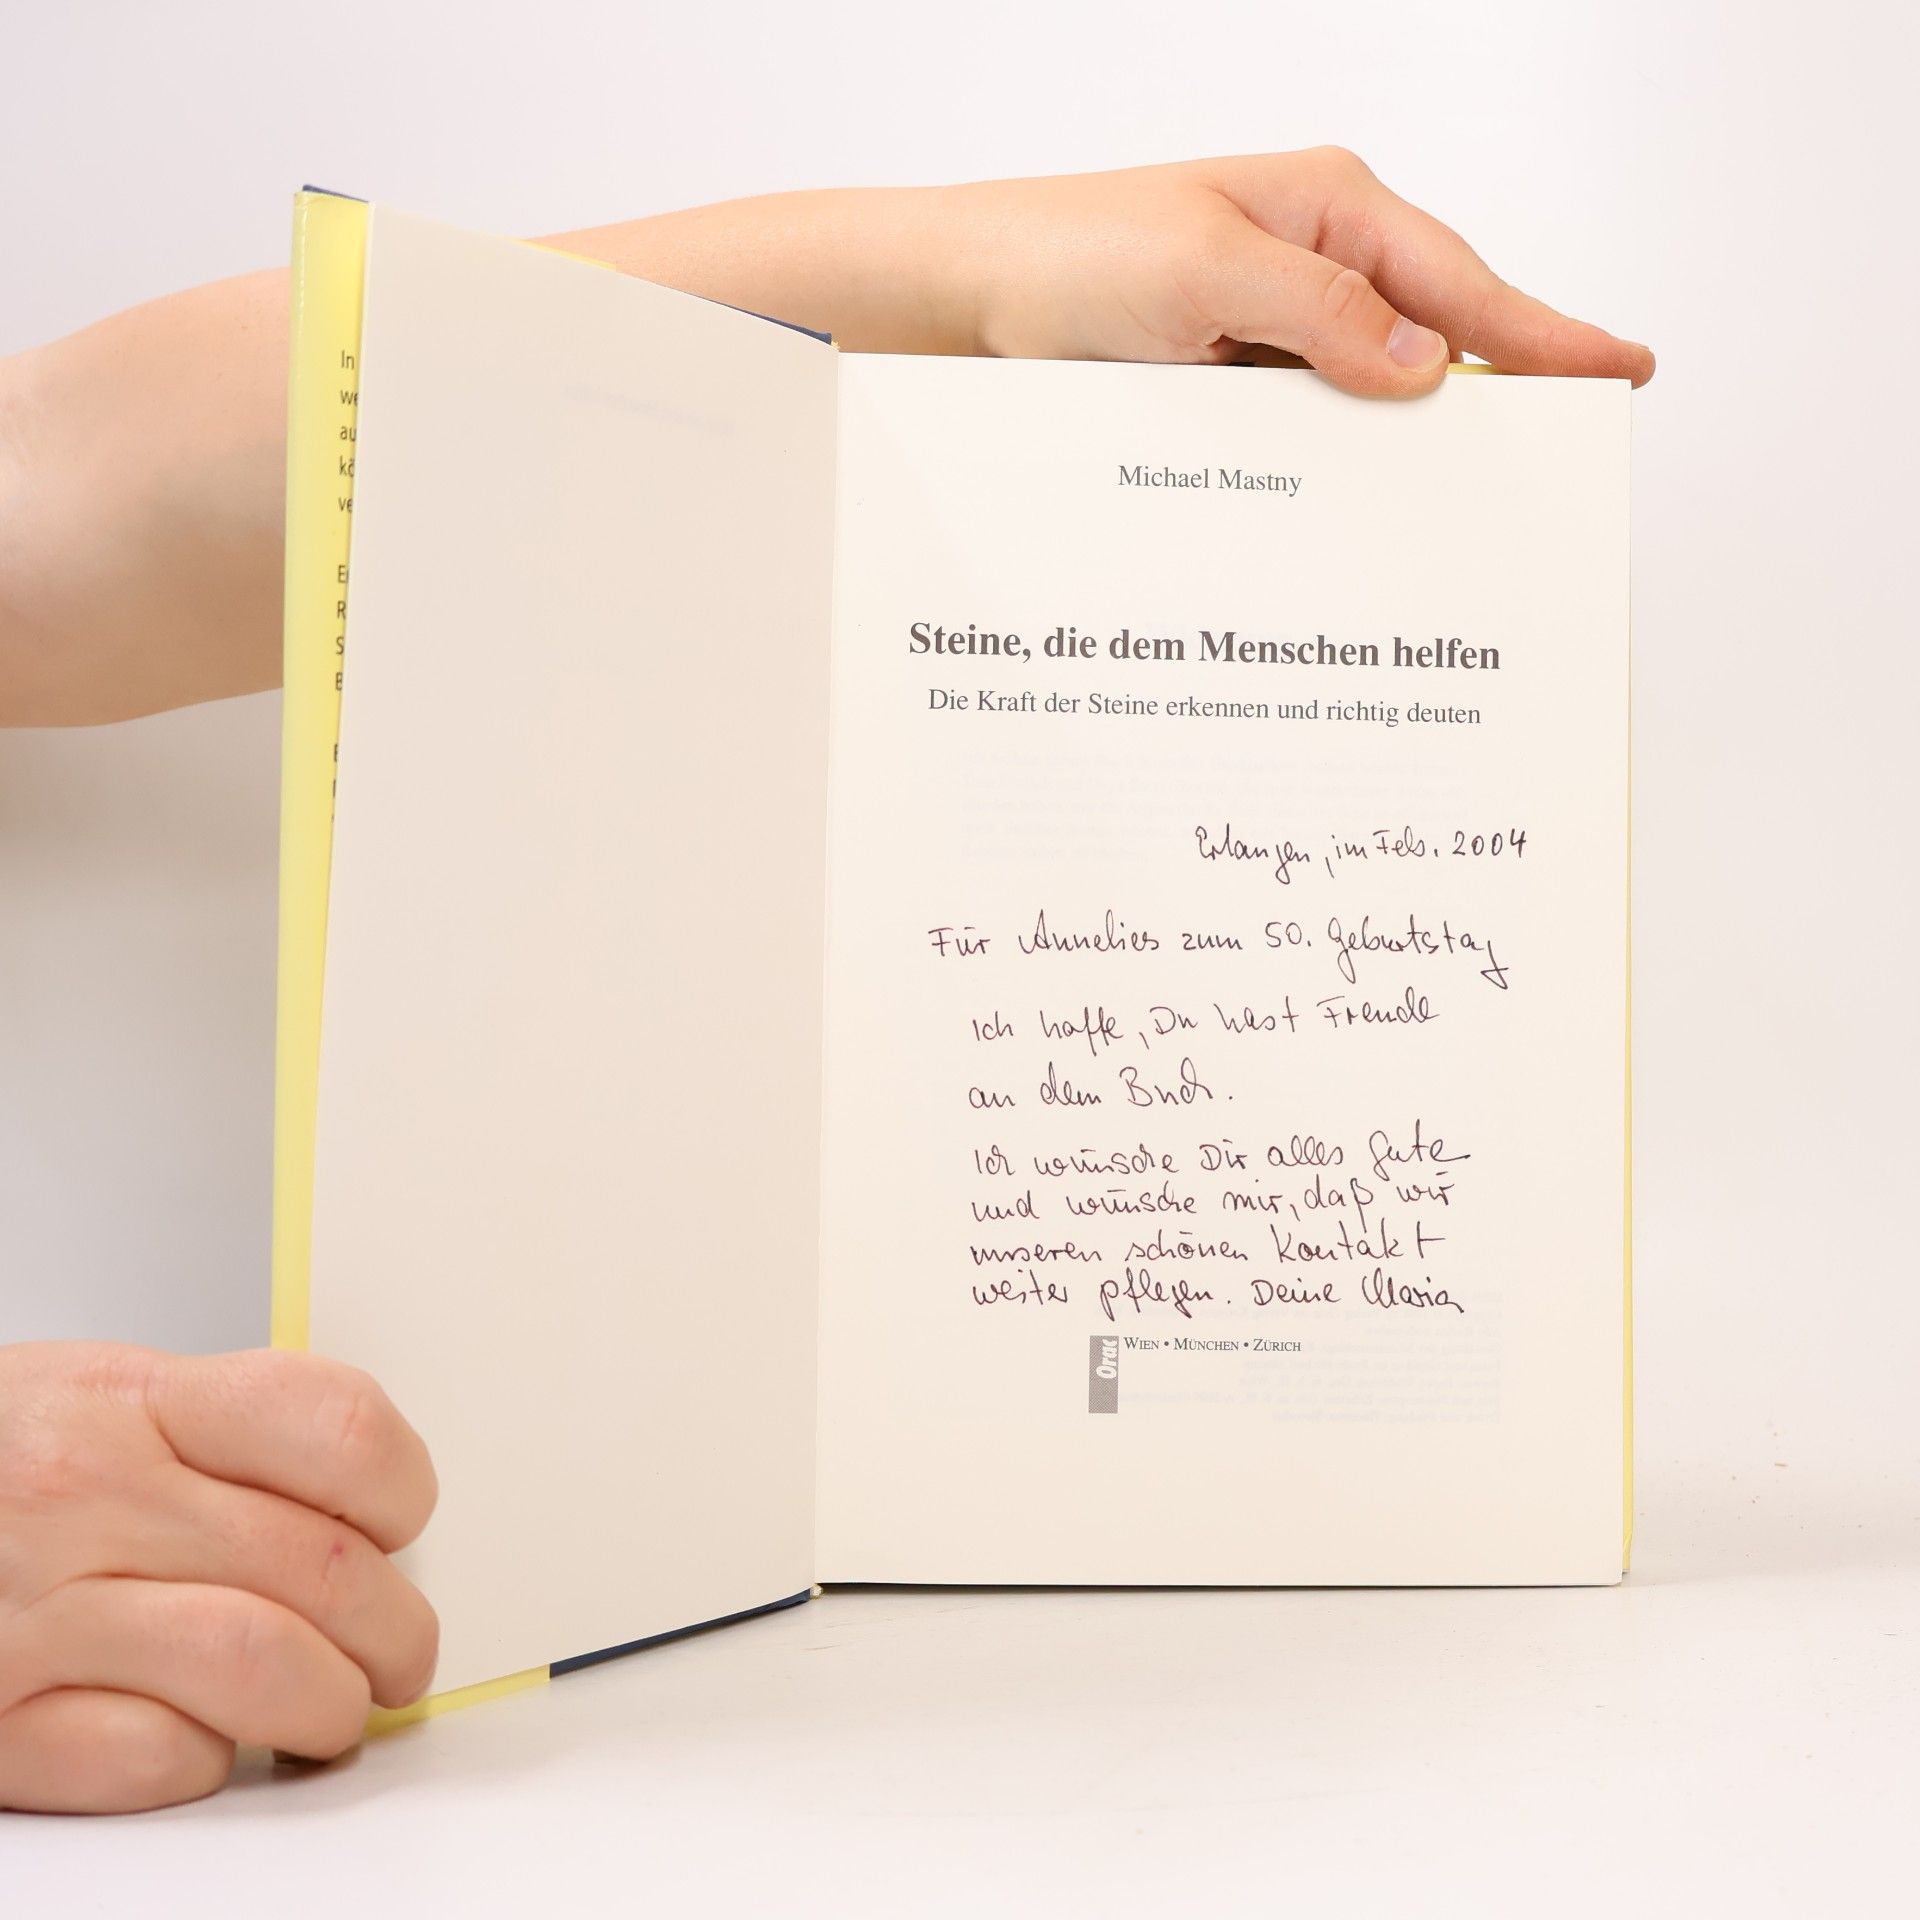 In
we
au
kö
ve
E
R
S
B
Michael Mastny
Steine, die dem Menschen helfen
Die Kraft der Steine erkennen und richtig deuten
Erlangen, im Feb. 2004
Für Annelies zum 50. Geburtstag
Ich hoffe, Du hast Freude
an dem Buch.
Ich wünsche Dir alles Gute
und wünsche mir, daß wir
unseren schönen Kontakt
weiter pflegen. Deine Maria
Orac
WIEN • MÜNCHEN • ZÜRICH